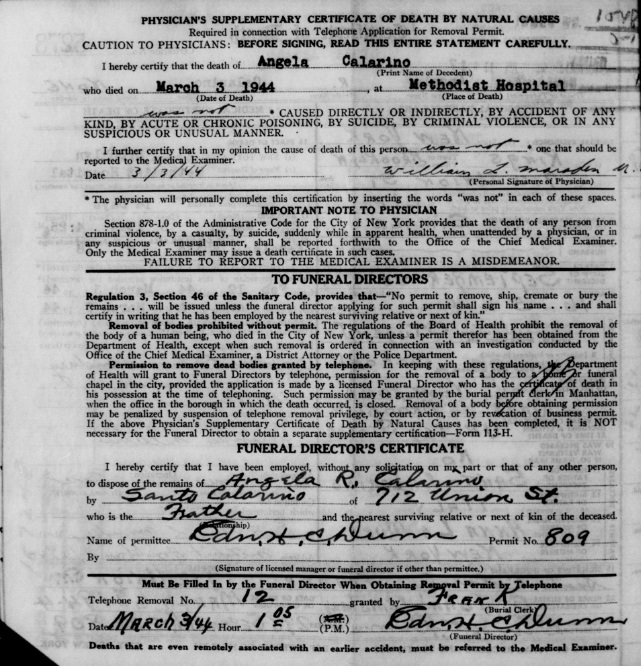 PHYSICIAN'S SUPPLEMENTARY CERTIFICATE OF DEATH BY NATURAL CAUSES
Required in connection with Telephone Application for Removal Permit.
CAUTION TO PHYSICIANS: BEFORE SIGNING, READ THIS ENTIRE STATEMENT CAREFULLY.
I hereby certify that the death of Angela Calarino
(Print Name of Decedent)
who died on March 3 1944, at Methodist Hospital
(Date of Death) (Place of Death)
was not * CAUSED DIRECTLY OR INDIRECTLY, BY ACCIDENT OF ANY
KIND, BY ACUTE OR CHRONIC POISONING, BY SUICIDE, BY CRIMINAL VIOLENCE, OR IN ANY
SUSPICIOUS OR UNUSUAL MANNER.
I further certify that in my opinion the cause of death of this person was not * one that should be
reported to the Medical Examiner.
Date 3/3/44 William L. Marsden M.
(Personal Signature of Physician)
* The physician will personally complete this certification by inserting the words "was not" in each of these spaces.
IMPORTANT NOTE TO PHYSICIAN
Section 878-1.0 of the Administrative Code for the City of New York provides that the death of any person from
criminal violence, by a casualty, by suicide, suddenly while in apparent health, when unattended by a physician, or in
any suspicious or unusual manner, shall be reported forthwith to the Office of the Chief Medical Examiner.
Only the Medical Examiner may issue a death certificate in such cases.
FAILURE TO REPORT TO THE MEDICAL EXAMINER IS A MISDEMEANOR.
TO FUNERAL DIRECTORS
Regulation 3, Section 46 of the Sanitary Code, provides that—"No permit to remove, ship, cremate or bury the
remains . . . will be issued unless the funeral director applying for such permit shall sign his name . . . and shall
certify in writing that he has been employed by the nearest surviving relative or next of kin."
Removal of bodies prohibited without permit. The regulations of the Board of Health prohibit the removal of
the body of a human being, who died in the City of New York, unless a permit therefor has been obtained from the
Department of Health, except when such removal is ordered in connection with an investigation conducted by the
Office of the Chief Medical Examiner, a District Attorney or the Police Department.
Permission to remove dead bodies granted by telephone. In keeping with these regulations, the Department
of Health will grant to Funeral Directors by telephone, permission for the removal of a body to a home or funeral
chapel in the city, provided the application is made by a licensed Funeral Director who has the certificate of death in
his possession at the time of telephoning. Such permission may be granted by the burial permit clerk in Manhattan,
when the office in the borough in which the death occurred, is closed. Removal of a body before obtaining permission
may be penalized by suspension of telephone removal privilege, by court action, or by revocation of business permit.
If the above Physician's Supplementary Certificate of Death by Natural Causes has been completed, it is NOT
necessary for the Funeral Director to obtain a separate supplementary certification—Form 113-H.
FUNERAL DIRECTOR'S CERTIFICATE
I hereby certify that I have been employed, without any solicitation on my part or that of any other person,
to dispose of the remains of Angela R. Calarino
by Santo Calarino of 712 Union St.
who is the Father and the nearest surviving relative or next of kin of the deceased.
(Relationship)
Name of permittee Edw. H. C. Dunn Permit No. 809
By
(Signature of licensed manager or funeral director if other than permittee.)
Must Be Filled In by the Funeral Director When Obtaining Removal Permit by Telephone
Telephone Removal No. 12 granted by Frank
(Burial Clerk)
Date March 3/44 Hour 1 05 (A.M.) (P.M.) Edw. H. C. Dunn
(Funeral Director)
Deaths that are even remotely associated with an earlier accident, must be referred to the Medical Examiner.